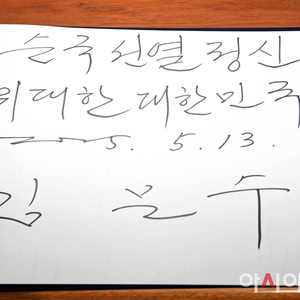 순국선열 정신
위대한 대한민국
2025. 5. 13.
김 문 수
아시아